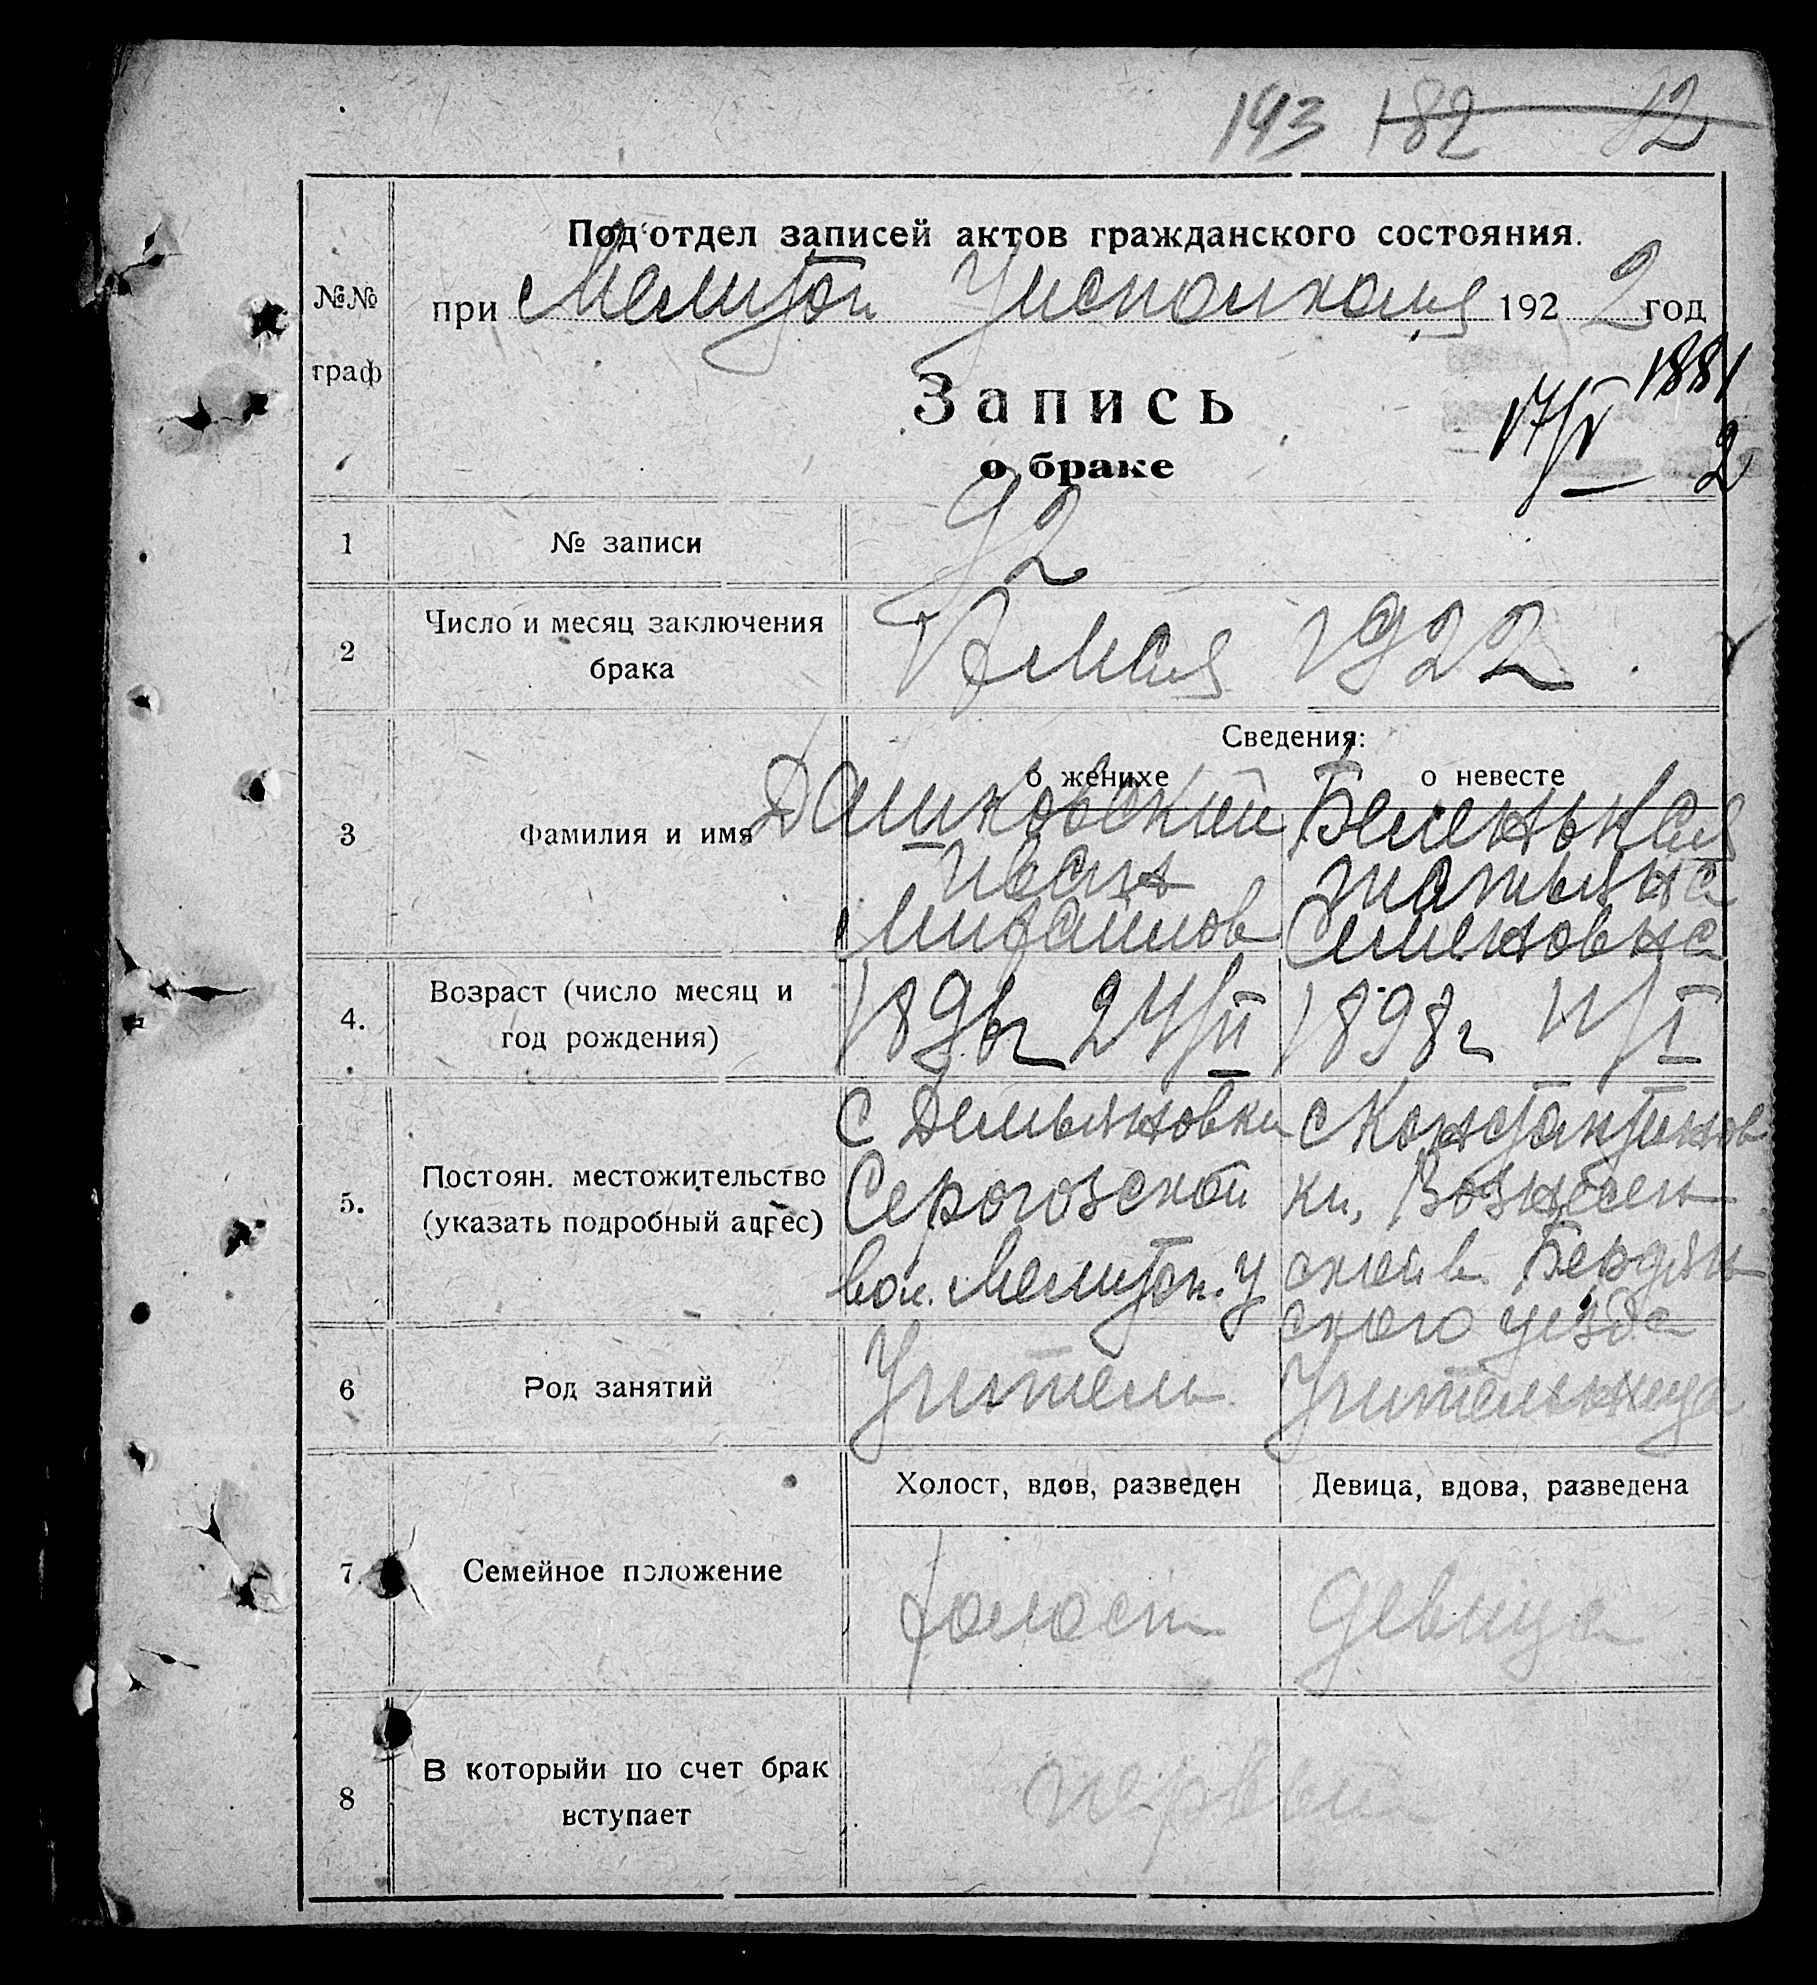 193 182 12
Под отдел записей актов гражданского состояния.
№№ граф
при Мелитоп Исполкома 1922 год
Запись
о браке
17/V 1881
2
1 № записи 92
2 Число и месяц заключения брака 17 мая 1922
Сведения:
о женихе о невесте
3 Фамилия и имя
Дашковский Беленькая
Иван Татьяна
Михайлов Семеновна
4. Возраст (число месяц и год рождения)
1896г 24/II 1898г 11/I
5. Постоян. местожительство (указать подробный адрес)
с Демьяновки с Константинов
Серогозской ки, Вознесен
вол. Мелитоп. у ской в. Бердян
ского уезда
6 Род занятий Учитель Учительница
Холост, вдов, разведен Девица, вдова, разведена
7. Семейное положение холост девица
8 В которыйи по счет брак вступает
первый